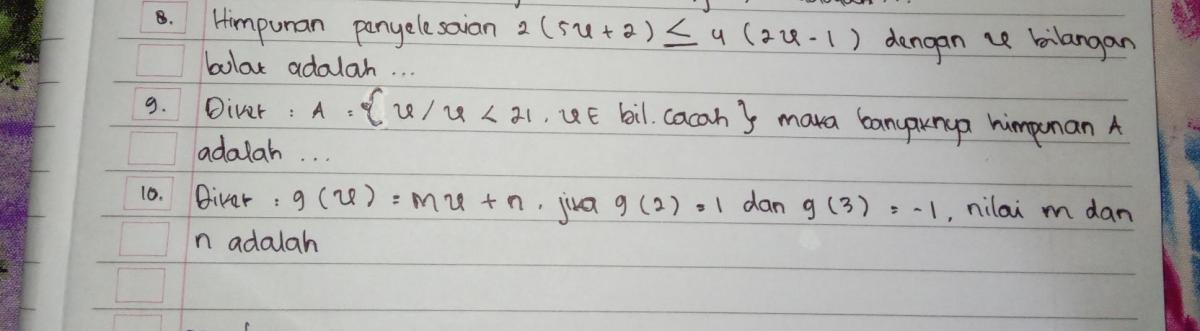 8. Himpunan penyelesaian 2 (5x + 2) ≤ 4 (2x - 1) dengan x bilangan
bulat adalah ...
9. Diket : A = { x / x < 21 . x E bil. cacah } maka banyaknya himpunan A
adalah ...
10. Diket : g (x) = mx + n . jika g (2) = 1 dan g (3) = -1, nilai m dan
n adalah